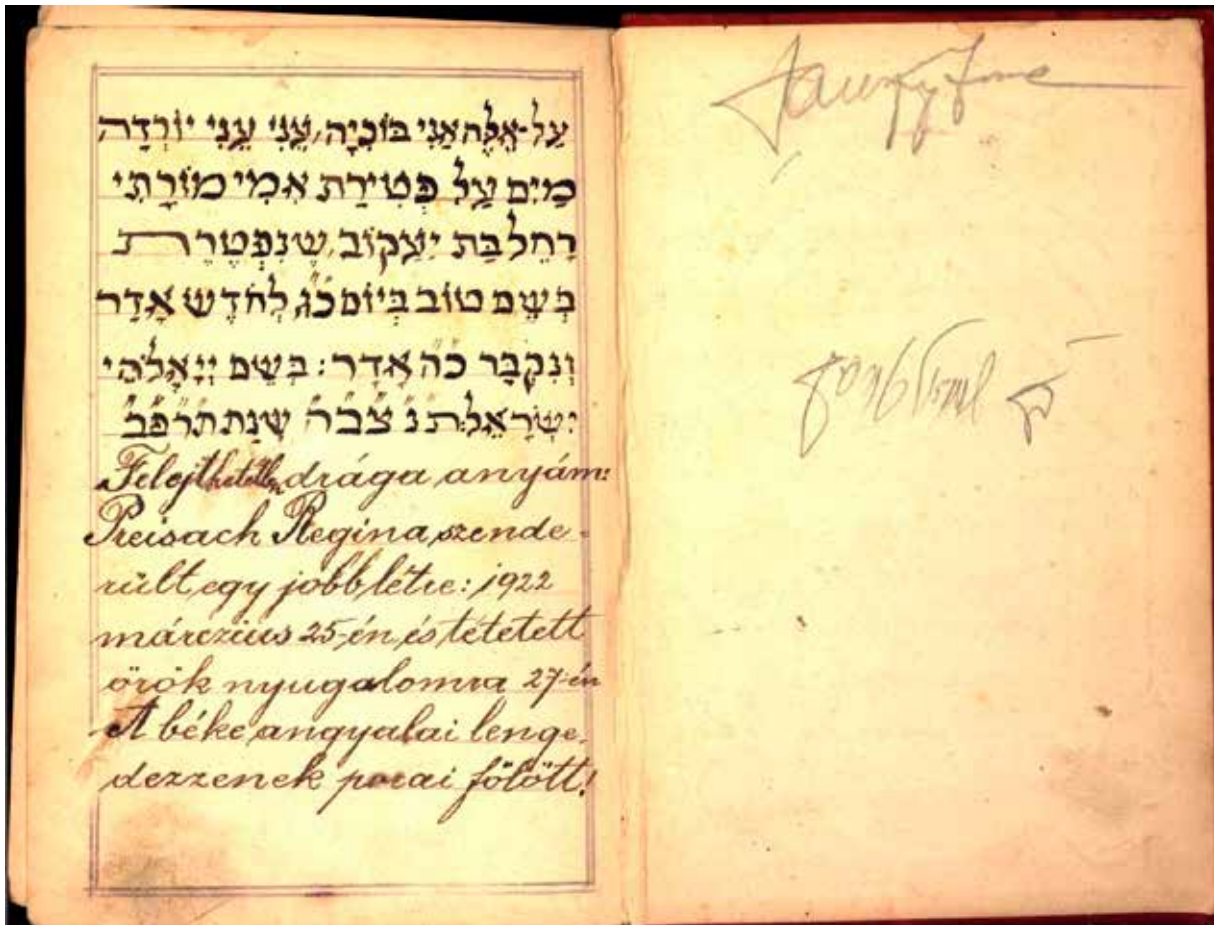 עַל־אֵלֶּה אֲנִי בוֹכִיָּה, עֵינִי עֵינִי יוֹרְדָה
מַיִם עַל פְּטִירַת אִמִּי מוֹרָתִי
רָחֵל בַּת יַעֲקוֹב, שֶׁנִּפְטֶרֶת
בְּשֵׁם טוֹב בְּיוֹם כ״ג לְחֹדֶשׁ אֲדָר
וְנִקְבָּר כ״ה אֲדָר: בְּשֵׁם יְיָ אֱלֹהֵי
יִשְׂרָאֵל: ת נ צ ב ה שְׁנַת תרפ״ב
Felejthetetlen drága anyám:
Preisach Regina szende-
rült egy jobb létre: 1922
márczius 25-én és tétetett
örök nyugalomra 27-én
A béke angyalai lenge-
dezzenek porai fölött!